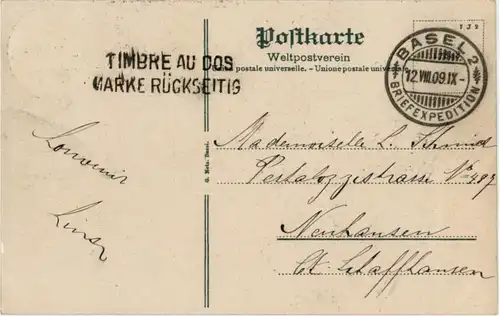 TIMBRE AU DOS
MARKE RÜCKSEITIG
Postkarte
Weltpostverein
postale universelle. - Unione postale universale
BASEL 2
12.VIII.09.IX-
BRIEFEXPEDITION
G. Metz, Basel.
Souvenir
Mademoiselle L. Schmid
Pestalozzistrasse No 497
Neuhausen
Ct. Schaffhausen